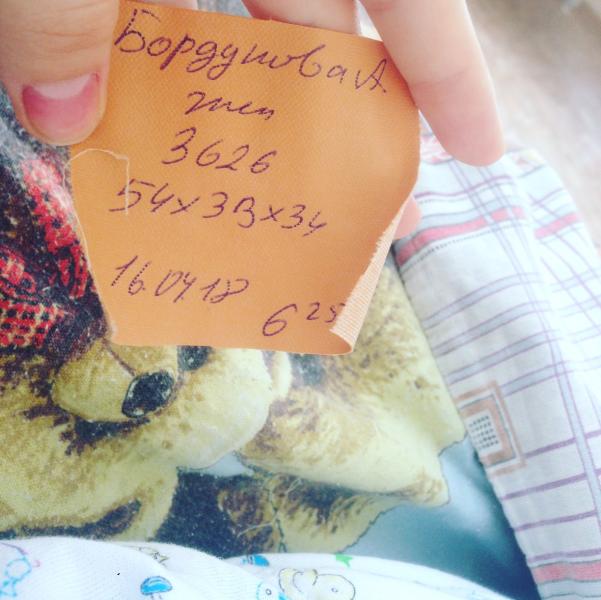 Бордуновая
жен
3626
54х33х34
16.04.18
6 25